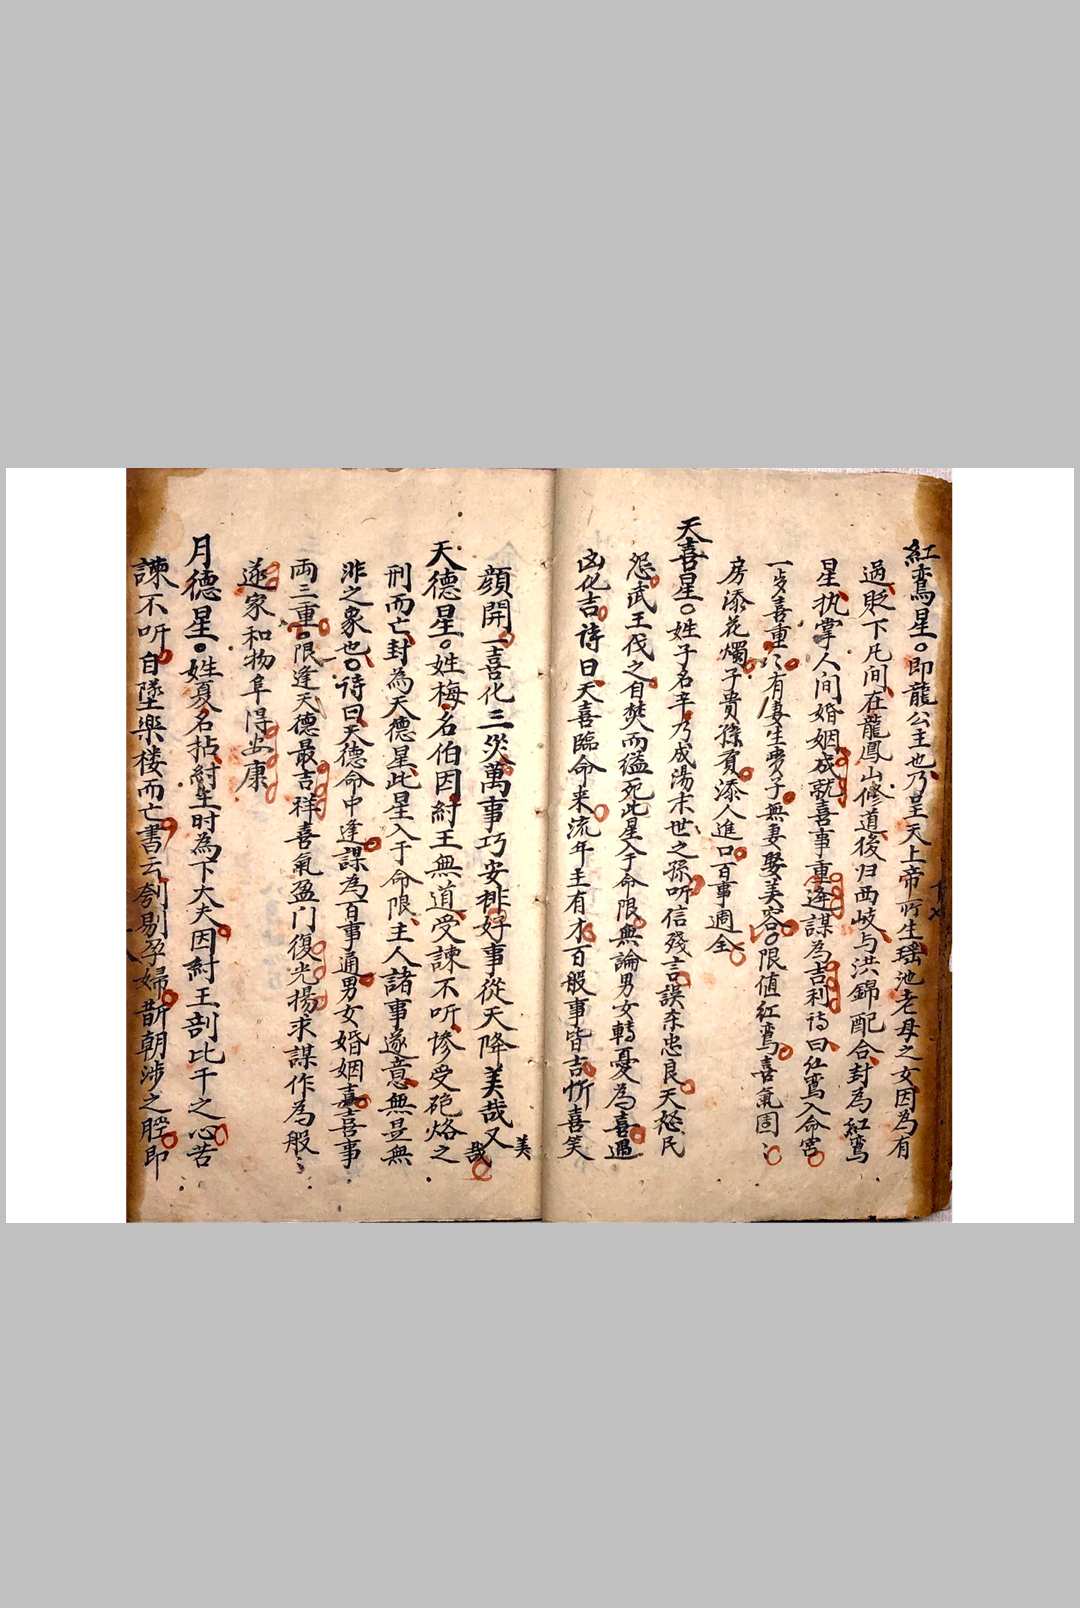 紅鸞星。即龍公主也乃呈天上帝所生瑶池老母之女因為有
過貶下凡间在龍鳳山修道後归西岐与洪錦配合封為紅鸞
星执掌人间婚姻成就喜事重逢謀為吉利诗曰红鸾入命宮
一步喜重々有妻生貴子無妻娶美容。限值紅鸞喜氣固
房添花燭子貴孫賢添人進口百事週全
天喜星。姓子名辛乃成湯末世之孫听信殘言誤杀忠良天怒民
怨武王伐之自焚而缢死此星入于命限無論男女轉憂為喜遇
凶化吉诗曰天喜臨命来流年主有才百般事皆吉忻喜笑
顔開一喜化三災萬事巧安排好事從天降美哉又
美
哉
天德星。姓梅名伯因紂王無道受諫不听慘受砲烙之
刑而亡封為天德星此星入于命限主人諸事遂意無是無
非之象也。诗曰天德命中逢謀為百事通男女婚姻喜喜事
両三重。限逢天德最吉祥喜氣盈门復光揚求謀作為般々
遂家和物阜得安康
月德星。姓夏名拈紂生时為下大夫因紂王剖比干之心苦
諫不听自墜樂楼而亡書云刳剔孕婦斮朝涉之脛即